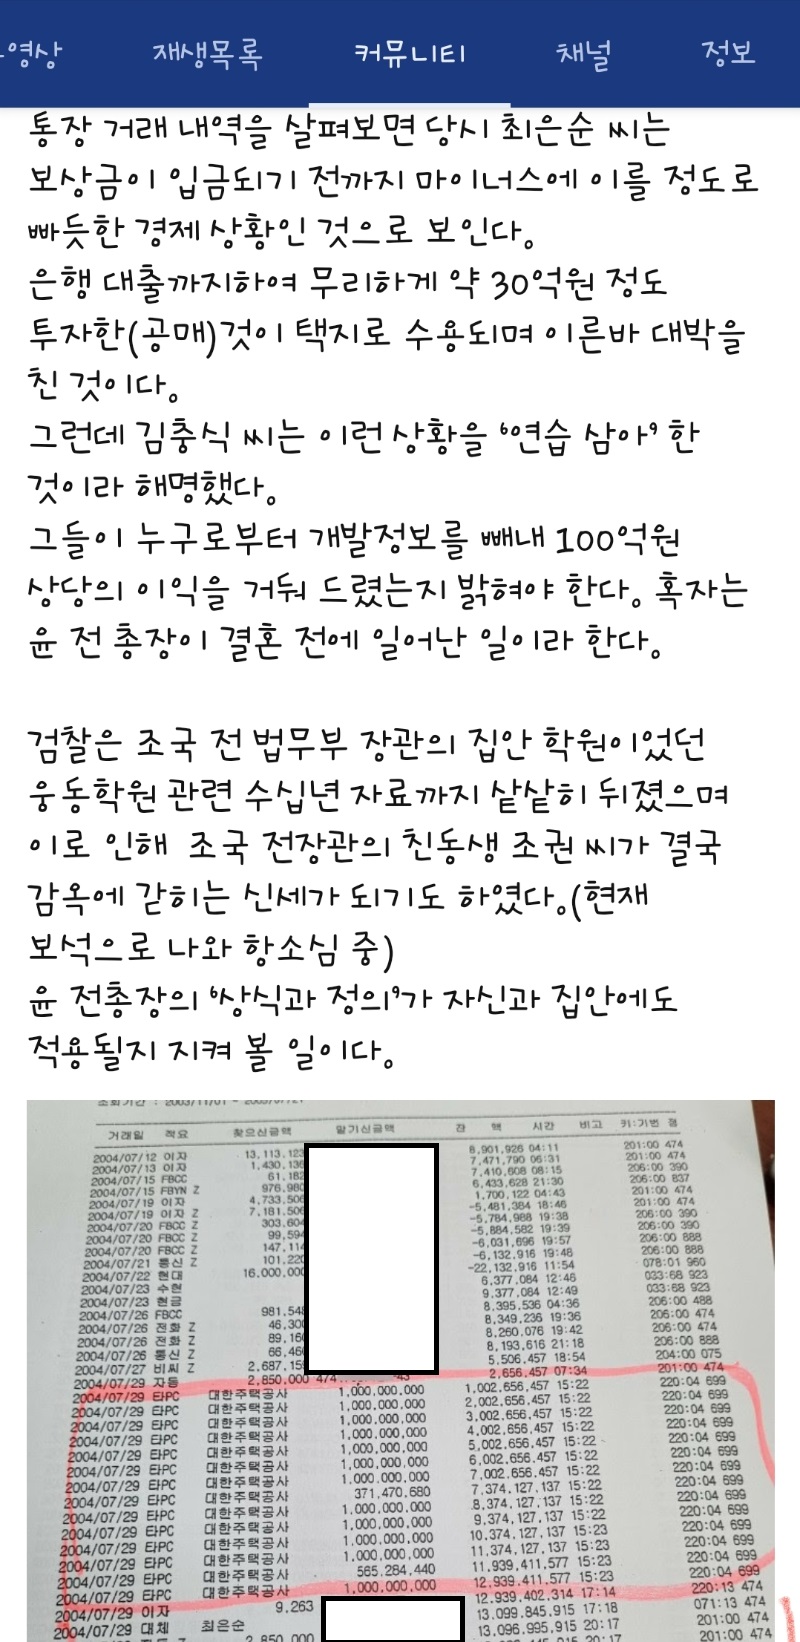 영상 재생목록 커뮤니티 채널 정보
통장 거래 내역을 살펴보면 당시 최은순 씨는
보상금이 입금되기 전까지 마이너스에 이를 정도로
빠듯한 경제 상황인 것으로 보인다.
은행 대출까지하여 무리하게 약 30억원 정도
투자한(공매)것이 택지로 수용되며 이른바 대박을
친 것이다.
그런데 김충식 씨는 이런 상황을 '연습 삼아' 한
것이라 해명했다.
그들이 누구로부터 개발정보를 빼내 100억원
상당의 이익을 거둬 드렸는지 밝혀야 한다. 혹자는
윤 전 총장이 결혼 전에 일어난 일이라 한다.
검찰은 조국 전 법무부 장관의 집안 학원이었던
웅동학원 관련 수십년 자료까지 샅샅히 뒤졌으며
이로 인해 조국 전장관의 친동생 조권 씨가 결국
감옥에 갇히는 신세가 되기도 하였다.(현재
보석으로 나와 항소심 중)
윤 전총장의 '상식과 정의'가 자신과 집안에도
적용될지 지켜 볼 일이다.
조회기간 : 2003/11/01 -
거래일 적요 찾으신금액 맡기신금액 잔 액 시간 비고 취:기번 점
2004/07/12 이자 13,113,123 8,901,926 04:11 201:00 474
2004/07/13 이자 1,430,136 7,471,790 06:31 201:00 474
2004/07/15 FBCC 61,182 7,410,608 08:15 206:00 390
2004/07/15 FBYN Z 976,980 6,433,628 21:30 206:00 837
2004/07/19 이자 4,733,506 1,700,122 04:43 201:00 474
2004/07/19 이자 Z 7,181,506 -5,481,384 18:46 201:00 474
2004/07/20 FBCC Z 303,604 -5,784,988 19:38 206:00 390
2004/07/20 FBCC Z 99,594 -5,884,582 19:39 206:00 390
2004/07/20 FBCC Z 147,114 -6,031,696 19:57 206:00 888
2004/07/21 통신 Z 101,220 -6,132,916 19:46 206:00 888
2004/07/22 현대 16,000,000 -22,132,916 11:54 078:01 960
2004/07/23 수현 6,377,084 12:46 033:68 923
2004/07/23 현금 9,377,084 12:49 033:68 923
2004/07/26 FBCC 981,548 8,395,536 04:36 206:00 488
2004/07/26 전화 Z 46,300 8,349,236 19:36 206:00 474
2004/07/26 전화 Z 89,160 8,260,076 19:42 206:00 474
2004/07/26 통신 Z 66,460 8,193,616 21:18 206:00 888
2004/07/27 비씨 Z 2,687,159 5,506,457 18:54 204:00 075
2004/07/29 자동 2,850,000 2,656,457 07:34 201:00 474
2004/07/29 타PC 대한주택공사 1,000,000,000 1,002,656,457 15:22 220:04 699
2004/07/29 타PC 대한주택공사 1,000,000,000 2,002,656,457 15:22 220:04 699
2004/07/29 타PC 대한주택공사 1,000,000,000 3,002,656,457 15:22 220:04 699
2004/07/29 타PC 대한주택공사 1,000,000,000 4,002,656,457 15:22 220:04 699
2004/07/29 타PC 대한주택공사 1,000,000,000 5,002,656,457 15:22 220:04 699
2004/07/29 타PC 대한주택공사 1,000,000,000 6,002,656,457 15:22 220:04 699
2004/07/29 타PC 대한주택공사 1,000,000,000 7,002,656,457 15:22 220:04 699
2004/07/29 타PC 대한주택공사 371,470,680 7,374,127,137 15:22 220:04 699
2004/07/29 타PC 대한주택공사 1,000,000,000 8,374,127,137 15:22 220:04 699
2004/07/29 타PC 대한주택공사 1,000,000,000 9,374,127,137 15:22 220:04 699
2004/07/29 타PC 대한주택공사 1,000,000,000 10,374,127,137 15:23 220:04 699
2004/07/29 타PC 대한주택공사 1,000,000,000 11,374,127,137 15:23 220:04 699
2004/07/29 타PC 대한주택공사 565,284,440 11,939,411,577 15:23 220:04 699
2004/07/29 타PC 대한주택공사 1,000,000,000 12,939,411,577 15:23 220:04 699
2004/07/29 이자 9,263 12,939,402,314 17:14 220:13 474
2004/07/29 대체 최은순 13,099,845,915 17:18 071:13 474
2,850,000 13,096,995,915 20:17 201:00 474